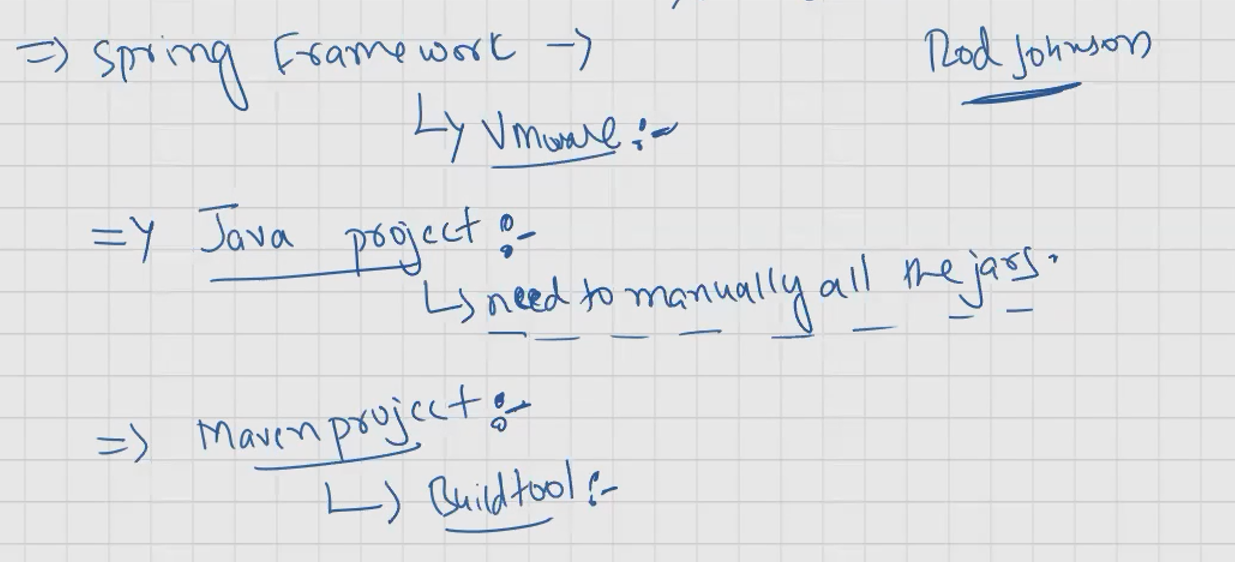 => Spring Framework -> Rod Johnson
↳ Vmware :-
=> Java project :-
↳ need to manually all the jars.
=> Maven project :-
↳ Build tool :-